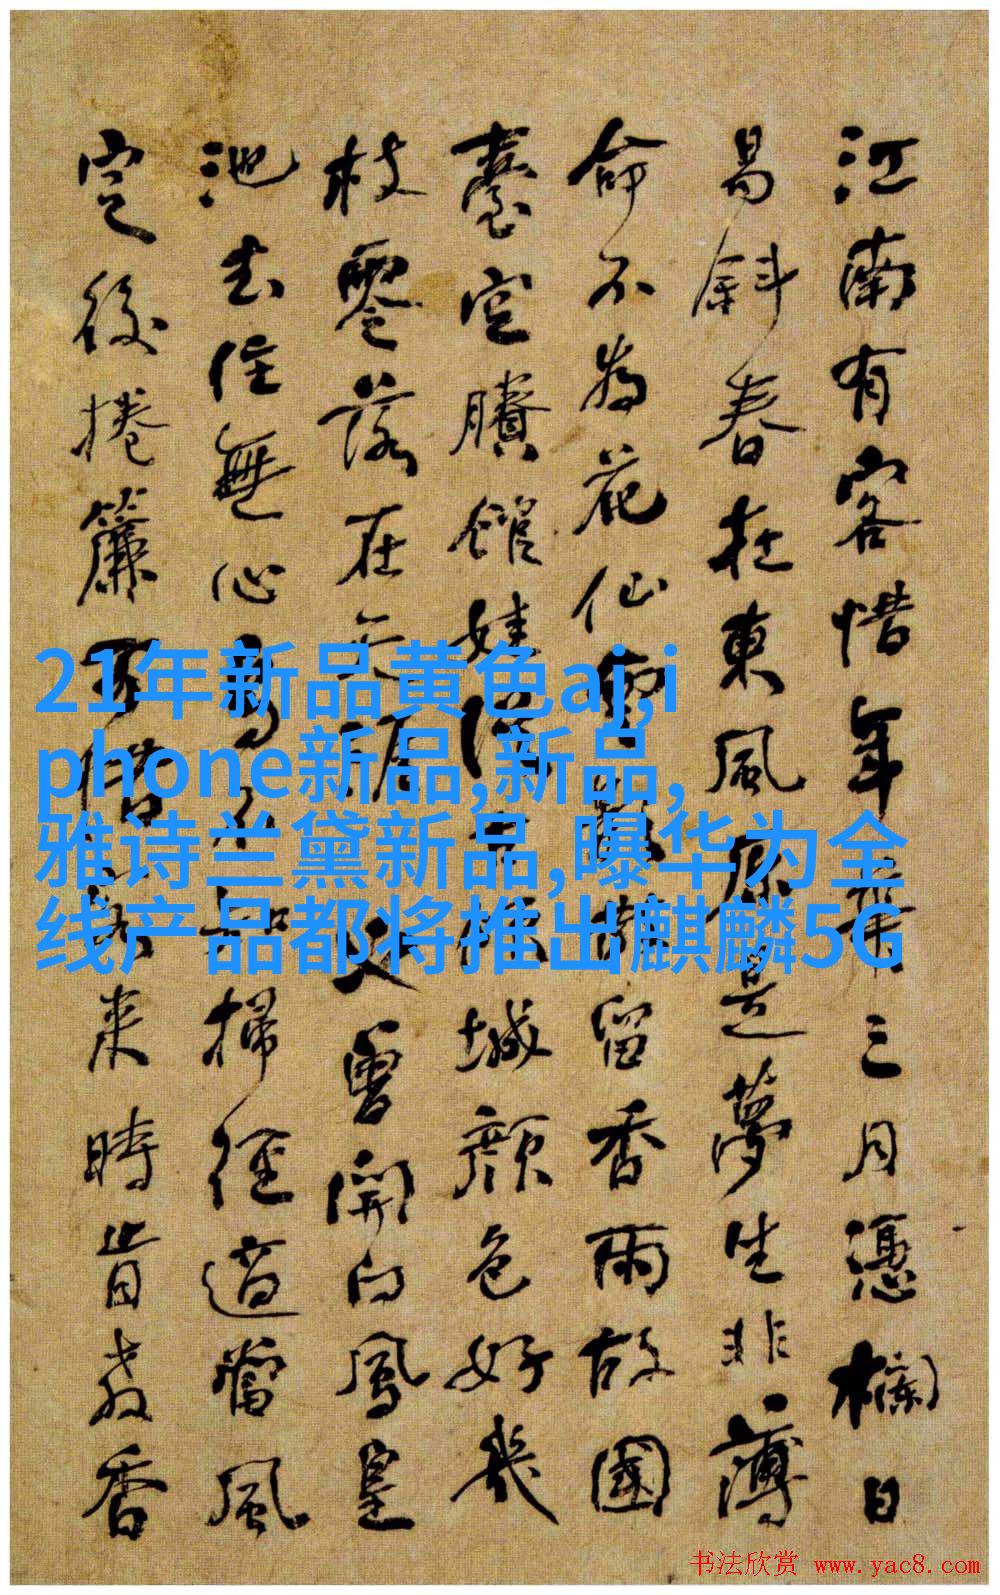 江南有客惜年華三月憑欄日
易斜春在東風原是夢生非薄
命不為花仙留香雨故國
臺空賸館娃漢城顏色好幾
枝零落在天曾開白鳳皇
池去住無心掃徑還當風
定後捲簾可惜來時皆有香
21年新品黄色aj,i
phone新品,新品,
雅诗兰黛新品,曝华为全
线产品都将推出麒麟5G
书法欣赏 www.yac8.com